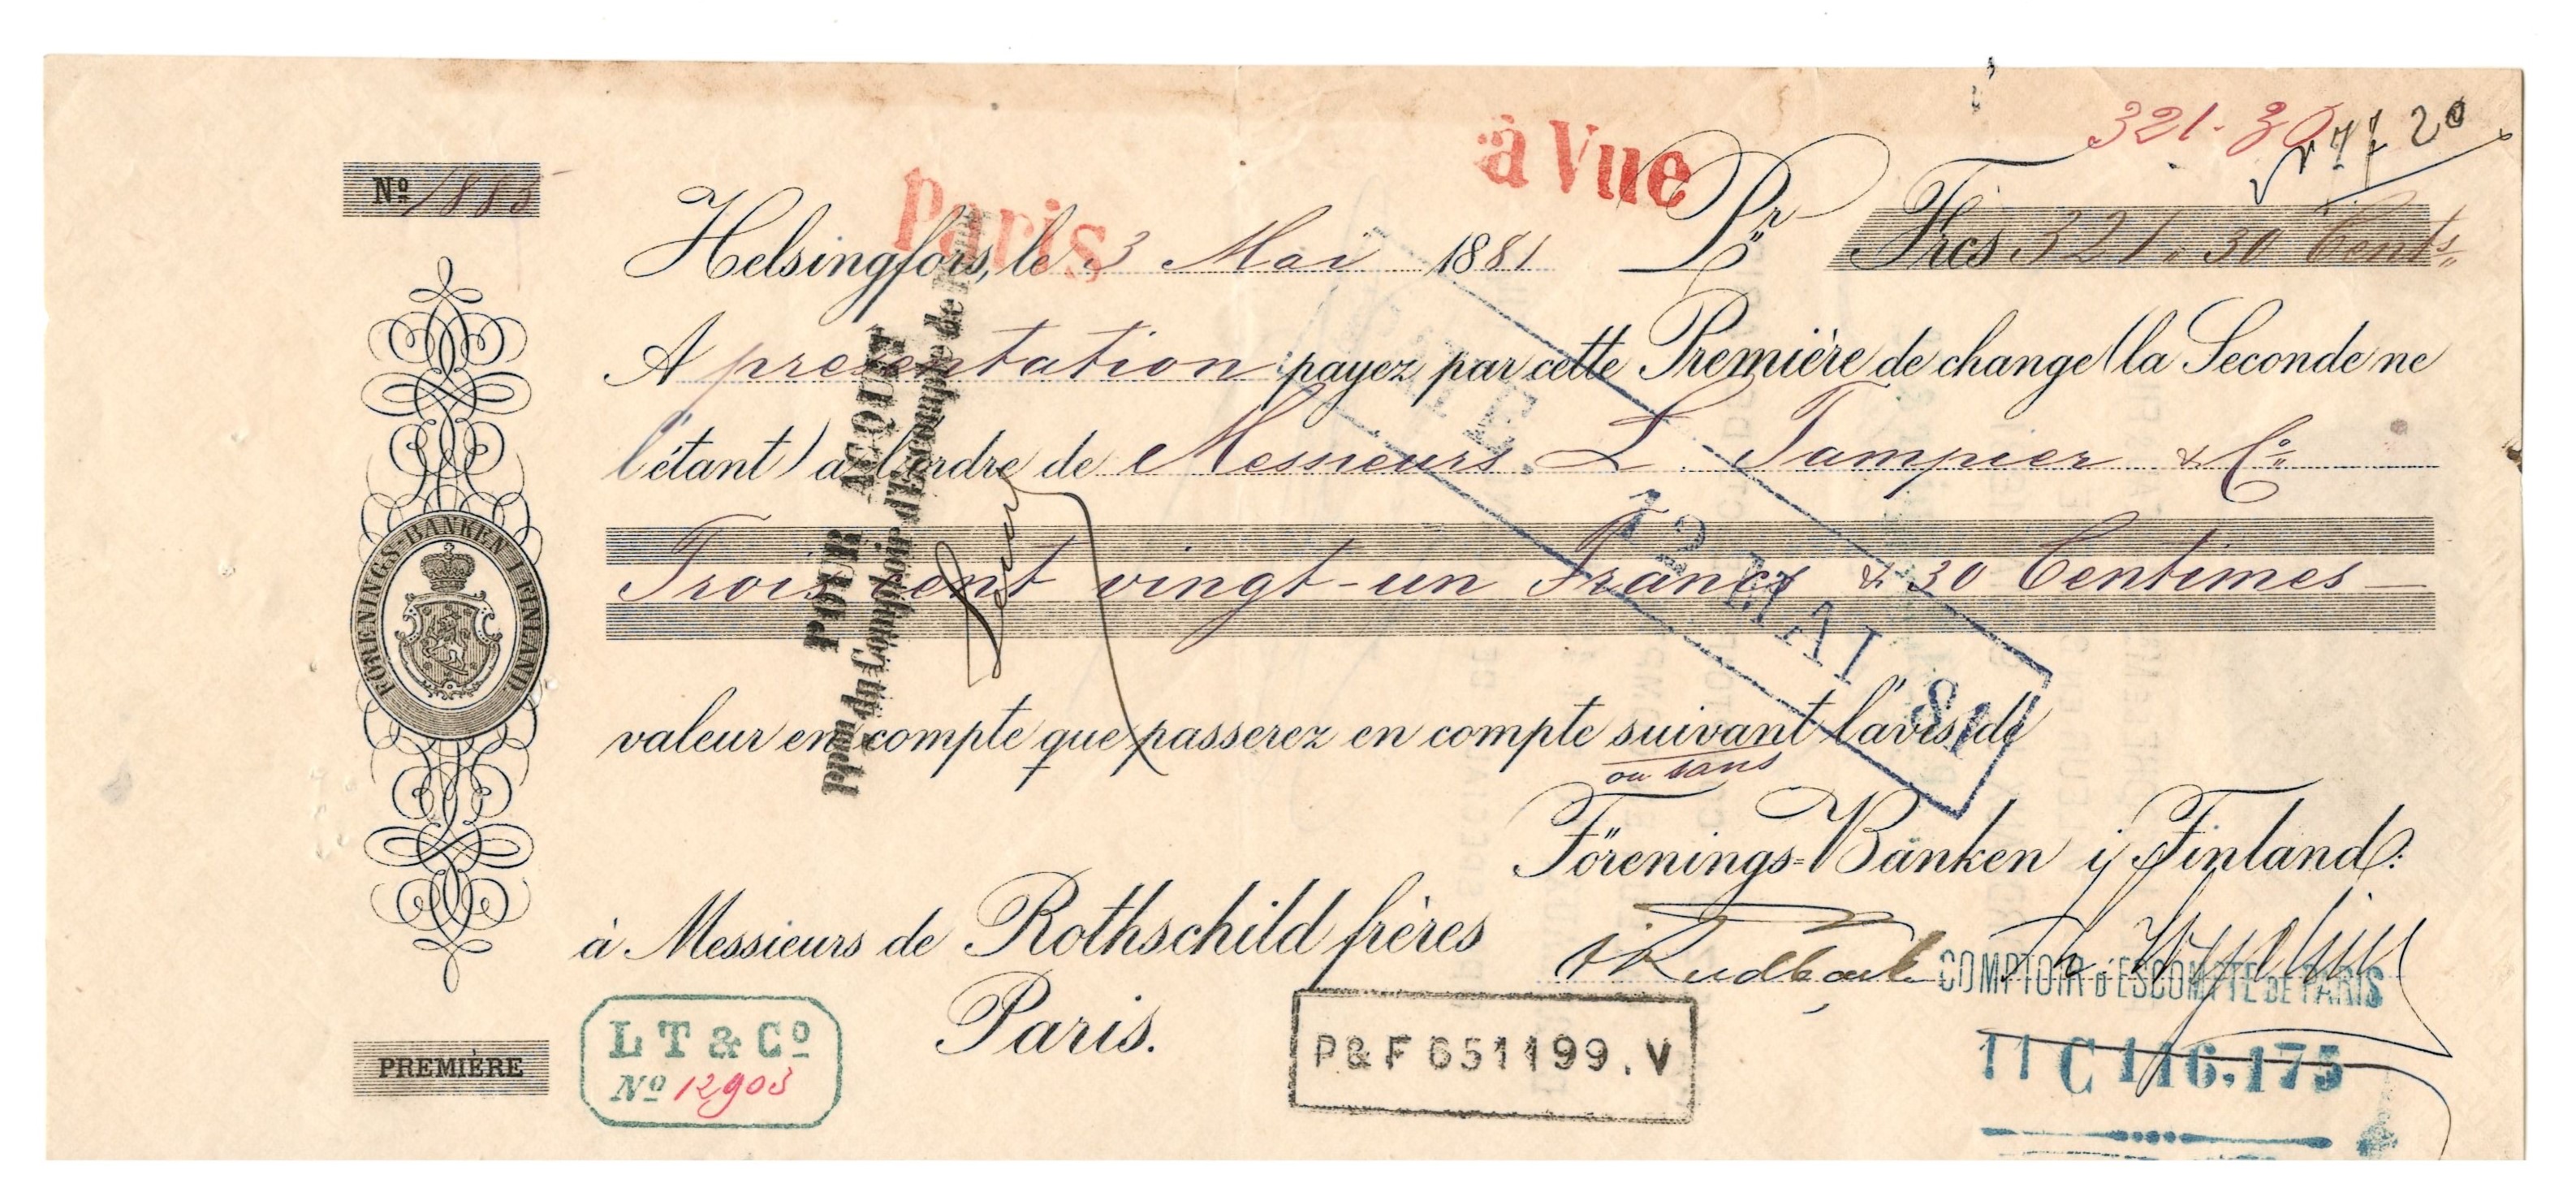 321.30
à Vue
Paris
Nº 1883
Helsingfors, le 3 Mai 1881 Pr Frcs 321. 30 Cents
A presentation payez par cette Première de change (la Seconde ne
l'étant) à l'ordre de Messieurs L. Tampier & Cº
Trois cent vingt-un Francs & 30 Centimes
valeur en compte que passerez en compte suivant l'avis de
ou sans
Förenings-Banken i Finland:
à Messieurs de Rothschild frères
Paris.
FÖRENINGS-BANKEN I FINLAND
POUR ACQUIT
ppon du Comptoir d'Escompte de Paris
12 MAI 81
COMPTOIR D'ESCOMPTE DE PARIS
11 C 116.175
P&F 651199.V
LT & Cº
Nº 12903
PREMIÈRE